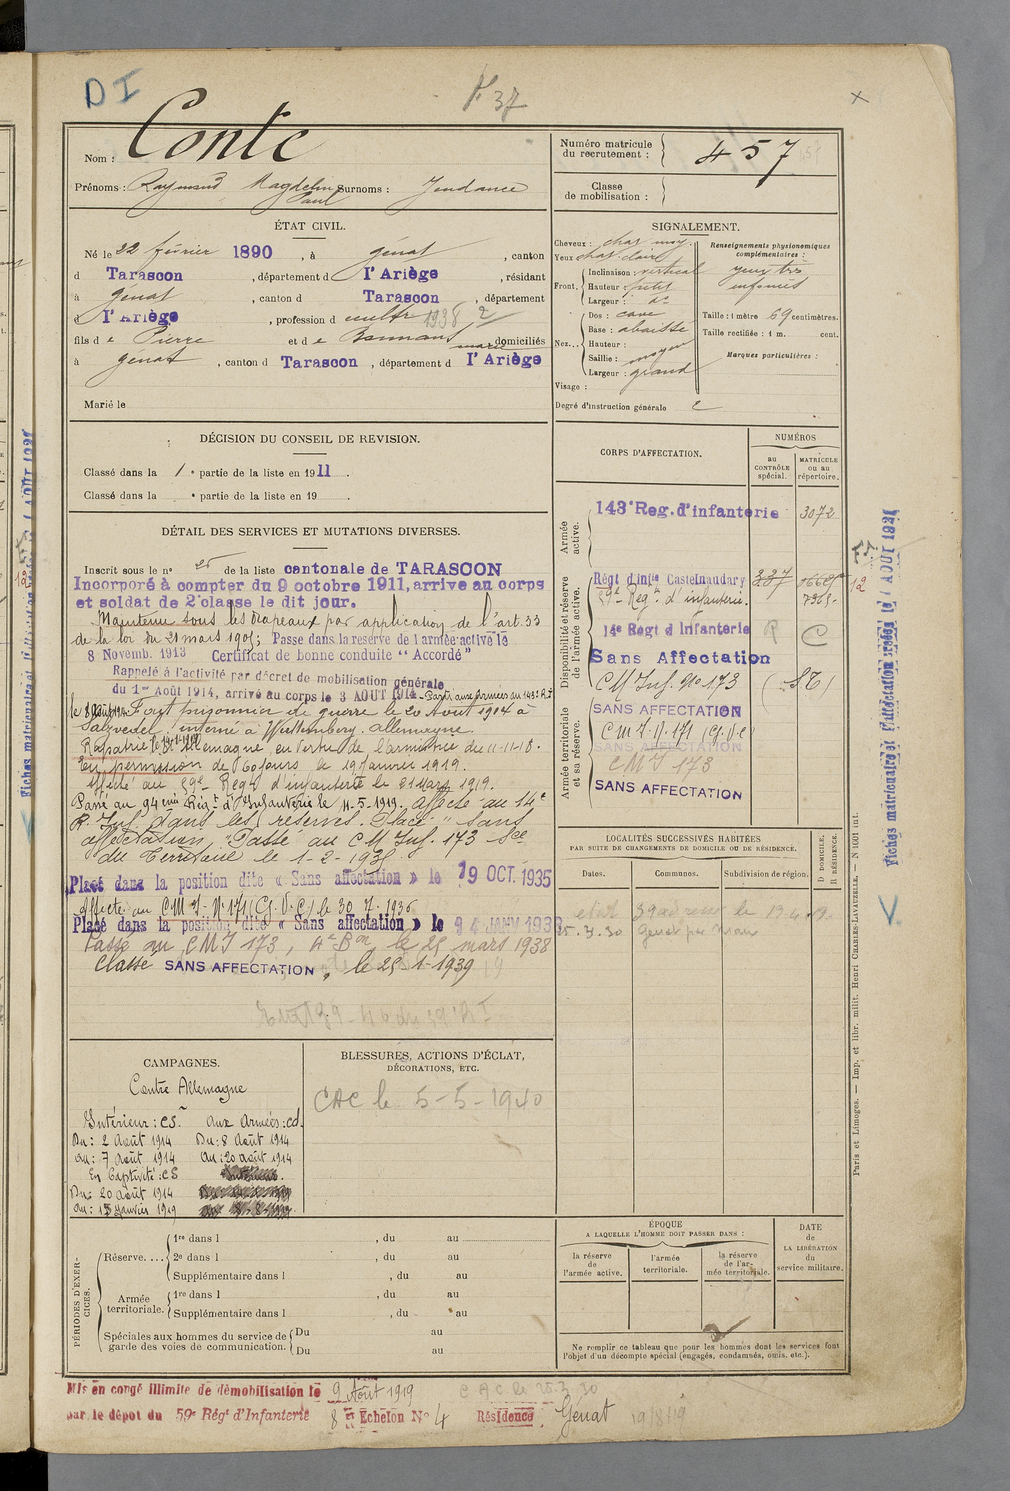 DI
37
Conte
Nom :
Prénoms : Raymond Magdelin Paul Surnoms : Jondance
Numéro matricule du recrutement : 457
Classe de mobilisation :
ÉTAT CIVIL.
Né le 22 février 1890, à génat, canton
d Tarascon, département d l'Ariège, résidant
à génat, canton d Tarascon, département
d l'Ariège, profession d cultr 1938
fils d e Pierre et d e marie domiciliés
à génat, canton d Tarascon, département d l'Ariège
Marié le
SIGNALEMENT.
Cheveux : chat moy.
Yeux chat. clair
Front. Inclinaison : vertical
Hauteur : petit
Largeur : do
Nez... Dos : cave
Base : abaissée
Hauteur :
Saillie : moyen
Largeur : grand
Visage :
Degré d'instruction générale 2
Renseignements physionomiques complémentaires :
yeux très enfoncés
Taille : 1 mètre 59 centimètres.
Taille rectifiée : 1 m. cent.
Marques particulières :
DÉCISION DU CONSEIL DE REVISION.
Classé dans la 1e partie de la liste en 1911.
Classé dans la e partie de la liste en 19 .
DÉTAIL DES SERVICES ET MUTATIONS DIVERSES.
Inscrit sous le no 25 de la liste cantonale de TARASCON
Incorporé à compter du 9 octobre 1911, arrive au corps
et soldat de 2e classe le dit jour.
Maintenu sous les drapeaux par application de l'art. 33
de la loi du 21 mars 1905; Passe dans la réserve de l'armée active le
8 Novemb. 1913 Certificat de bonne conduite "Accordé"
Rappelé à l'activité par décret de mobilisation générale
du 1er Août 1914, arrivé au corps le 3 AOUT 1914. Parti aux armées du 143e R.I
le 8 août 1914. Fait prisonnier de guerre le 20 Août 1914 à
interné à Wurtemberg. Allemagne.
Rapatrié d'Allemagne, en vertu de l'armistice du 11-11-18.
En permission de 60 jours le 19 janvier 1919.
Affecté au 59e Regt d'infanterie le 21 mars 1919.
Passé au 94eme Régt d'Infanterie le 11-5-1919. Affecté au 14e
R. Inf. dans les réserves. Placé "Sans
affectation". Passé au C M Inf. 173 Son
du Territoire le 1-2-193
Placé dans la position dite « Sans affectation » le 19 OCT. 1935
Affecté au C.M.I. No 171 (G.V.C) le 30 7-1936
Placé dans la position dite « Sans affectation » le 24 JANV 1938
Passé au CMI 173, le 25 mars 1938
Classé SANS AFFECTATION, le 25 1-1939
CORPS D'AFFECTATION.
NUMÉROS
au CONTRÔLE spécial.
MATRICULE ou au répertoire.
Armée active.
143e Reg. d'infanterie 3072
Disponibilité et réserve de l'armée active.
Régt d'Inf.ie Castelnaudary 337
59e Regt d'infanterie.
14e Regt d'Infanterie R C
Sans Affectation
CM Inf. No 173
Armée territoriale et sa réserve.
SANS AFFECTATION
C m I. No 171 (G.V.C)
SANS AFFECTATION
CMI 173
SANS AFFECTATION
12
Fiches matricule et d'affectation créées le 1 AOUT 1921
LOCALITÉS SUCCESSIVES HABITÉES
PAR SUITE DE CHANGEMENTS DE DOMICILE OU DE RÉSIDENCE.
Dates.
Communes.
Subdivision de région.
D DOMICILE, R RÉSIDENCE.
25.7.30 Génat par Niaux
CAMPAGNES.
Contre Allemagne
Intérieur : CS.
Du : 2 août 1914
au : 7 août 1914
En Captivité : CS
Du : 20 août 1914
au : 15 janvier 1919
aux armées : cd.
Du : 8 août 1914
au : 20 août 1914
BLESSURES, ACTIONS D'ÉCLAT, DÉCORATIONS, ETC.
CAC le 5-5-1940
PÉRIODES D'EXERCICES.
Réserve.... 1re dans l , du au
2e dans l , du au
Supplémentaire dans l , du au
Armée territoriale. 1re dans l , du au
Supplémentaire dans l , du au
Spéciales aux hommes du service de garde des voies de communication. Du au
Du au
ÉPOQUE
A LAQUELLE L'HOMME DOIT PASSER DANS :
la réserve de l'armée active.
l'armée territoriale.
la réserve de l'armée territoriale.
DATE de LA LIBÉRATION du service militaire.
Ne remplir ce tableau que pour les hommes dont les services font
l'objet d'un décompte spécial (engagés, condamnés, omis, etc.).
Mis en congé illimité de démobilisation le 9 Août 1919
par le dépôt du 59e Régt d'Infanterie 8e Echelon No 4 Résidence Génat 19/8/19
CAC le 25.7.30
Paris et Limoges. — Imp. et libr. milit. Henri CHARLES-LAVAUZELLE. — N 1601 int.